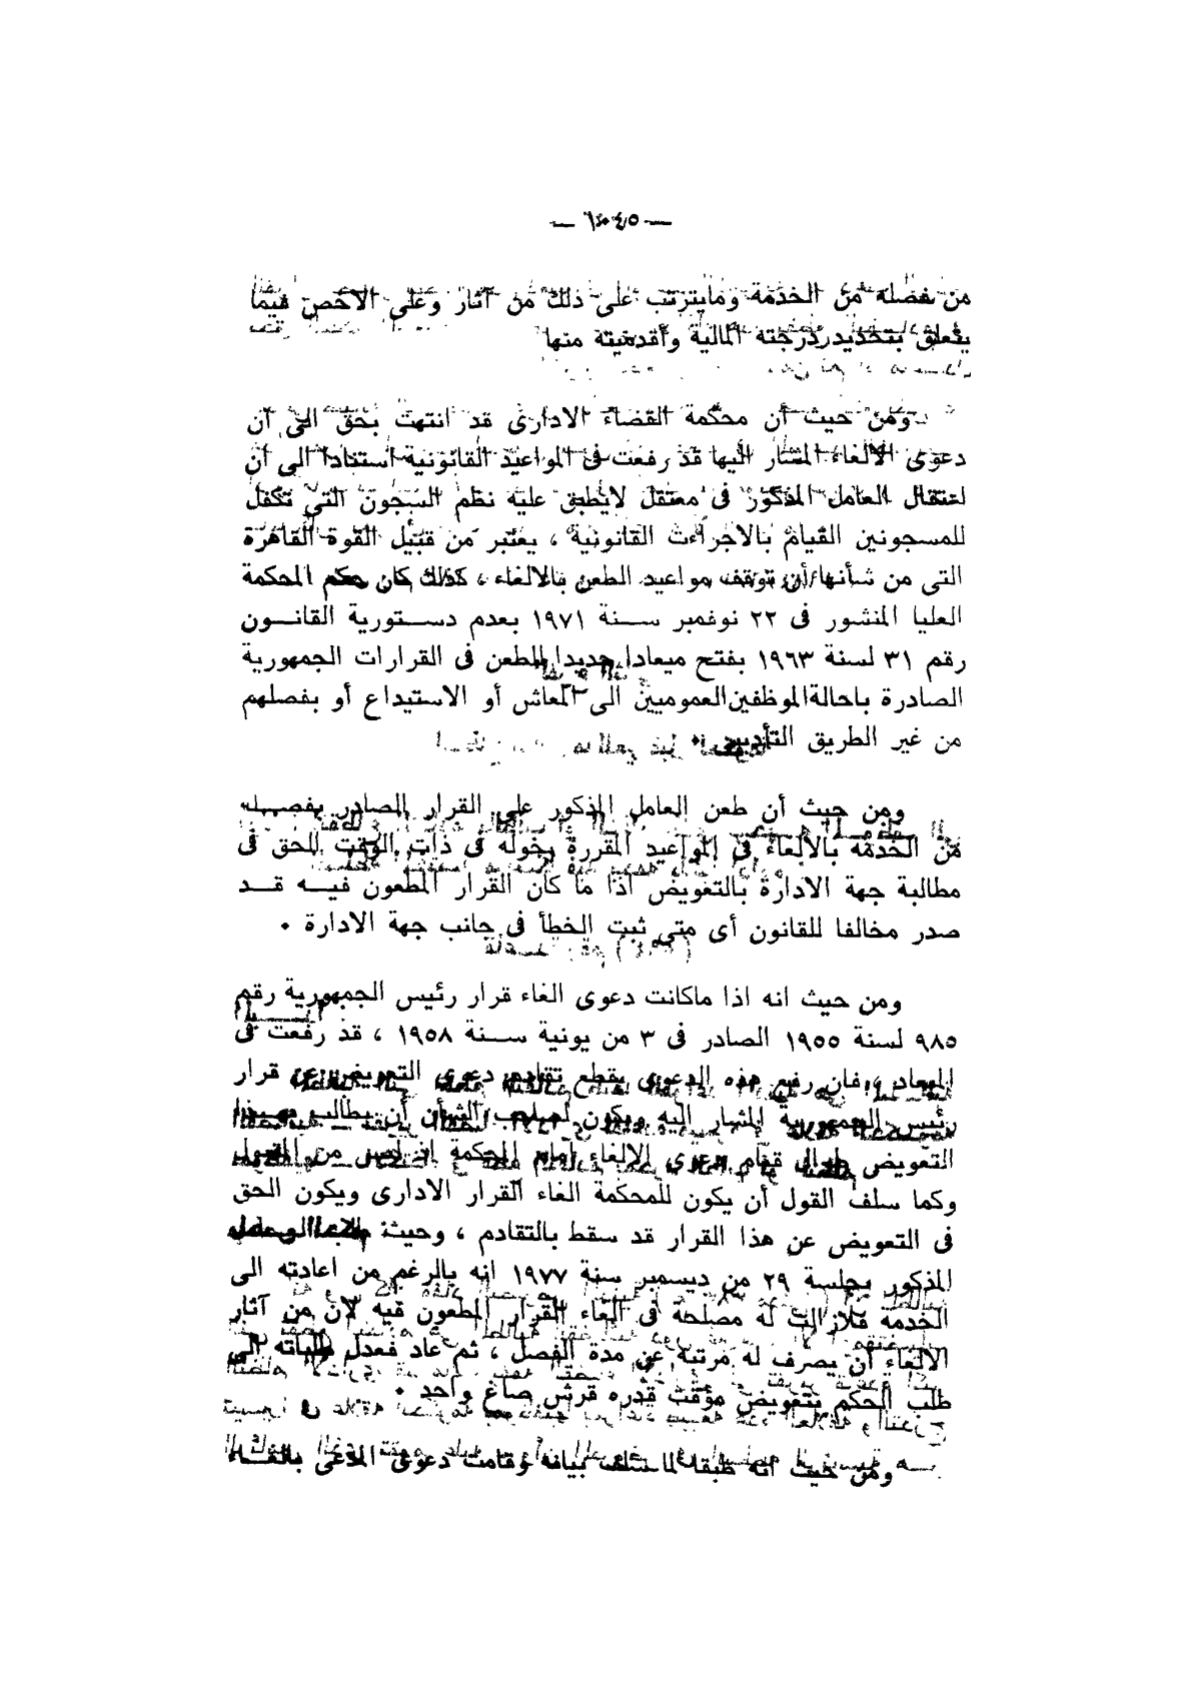 من فصله من الخدمة ومايترتب على ذلك من آثار وعلى الاخص فيما
يتعلق بتحديد درجته المالية وأقدميته منها
ومن حيث أن محكمة القضاء الادارى قد انتهت بحق الى أن
دعوى الالغاء المشار اليها قد رفعت فى المواعيد القانونية استنادا الى أن
اعتقال العامل المذكور فى معتقل لايطبق عليه نظم السجون التى تكفل
للمسجونين القيام بالاجراءت القانونية ، يعتبر من قبيل القوة القاهرة
التى من شأنها أن توقف مواعيد الطعن بالالغاء ، كذلك كان حكم المحكمة
العليا المنشور فى ٢٢ نوفمبر سنة ١٩٧١ بعدم دستورية القانون
رقم ٣١ لسنة ١٩٦٣ بفتح ميعادا جديدا للطعن فى القرارات الجمهورية
الصادرة باحالة الموظفين العموميين الى المعاش أو الاستيداع أو بفصلهم
من غير الطريق التأديبى ٠
ومن حيث أن طعن العامل المذكور على القرار الصادر بفصله
من الخدمة بالالغاء فى المواعيد المقررة يخوله فى ذات الوقت الحق فى
مطالبة جهة الادارة بالتعويض اذا ما كان القرار المطعون فيه قد
صدر مخالفا للقانون أى متى ثبت الخطأ فى جانب جهة الادارة ٠
ومن حيث انه اذا ماكانت دعوى الغاء قرار رئيس الجمهورية رقم
٩٨٥ لسنة ١٩٥٥ الصادر فى ٣ من يونية سنة ١٩٥٨ ، قد رفعت فى
الميعاد ، فان رفع هذه الدعوى يقطع تقادم دعوى التعويض عن قرار
رئيس الجمهورية المشار اليه ويكون لصاحب الشأن أن يطالب بهذا
التعويض طوال قيام دعوى الالغاء أمام المحكمة اذ ليس من المقبول
وكما سلف القول أن يكون للمحكمة الغاء القرار الادارى ويكون الحق
فى التعويض عن هذا القرار قد سقط بالتقادم ، وحيث
المذكور بجلسة ٢٩ من ديسمبر سنة ١٩٧٧ انه بالرغم من اعادته الى
الخدمة فلازالت له مصلحة فى الغاء القرار المطعون فيه لان من آثار
الالغاء أن يصرف له مرتبه عن مدة الفصل ، ثم عاد فعدل طلباته الى
طلب الحكم بتعويض مؤقت قدره قرش صاغ واحد ٠
ومن حيث انه طبقا لما سلف بيانه وقامت دعوى المدعى بالغاء